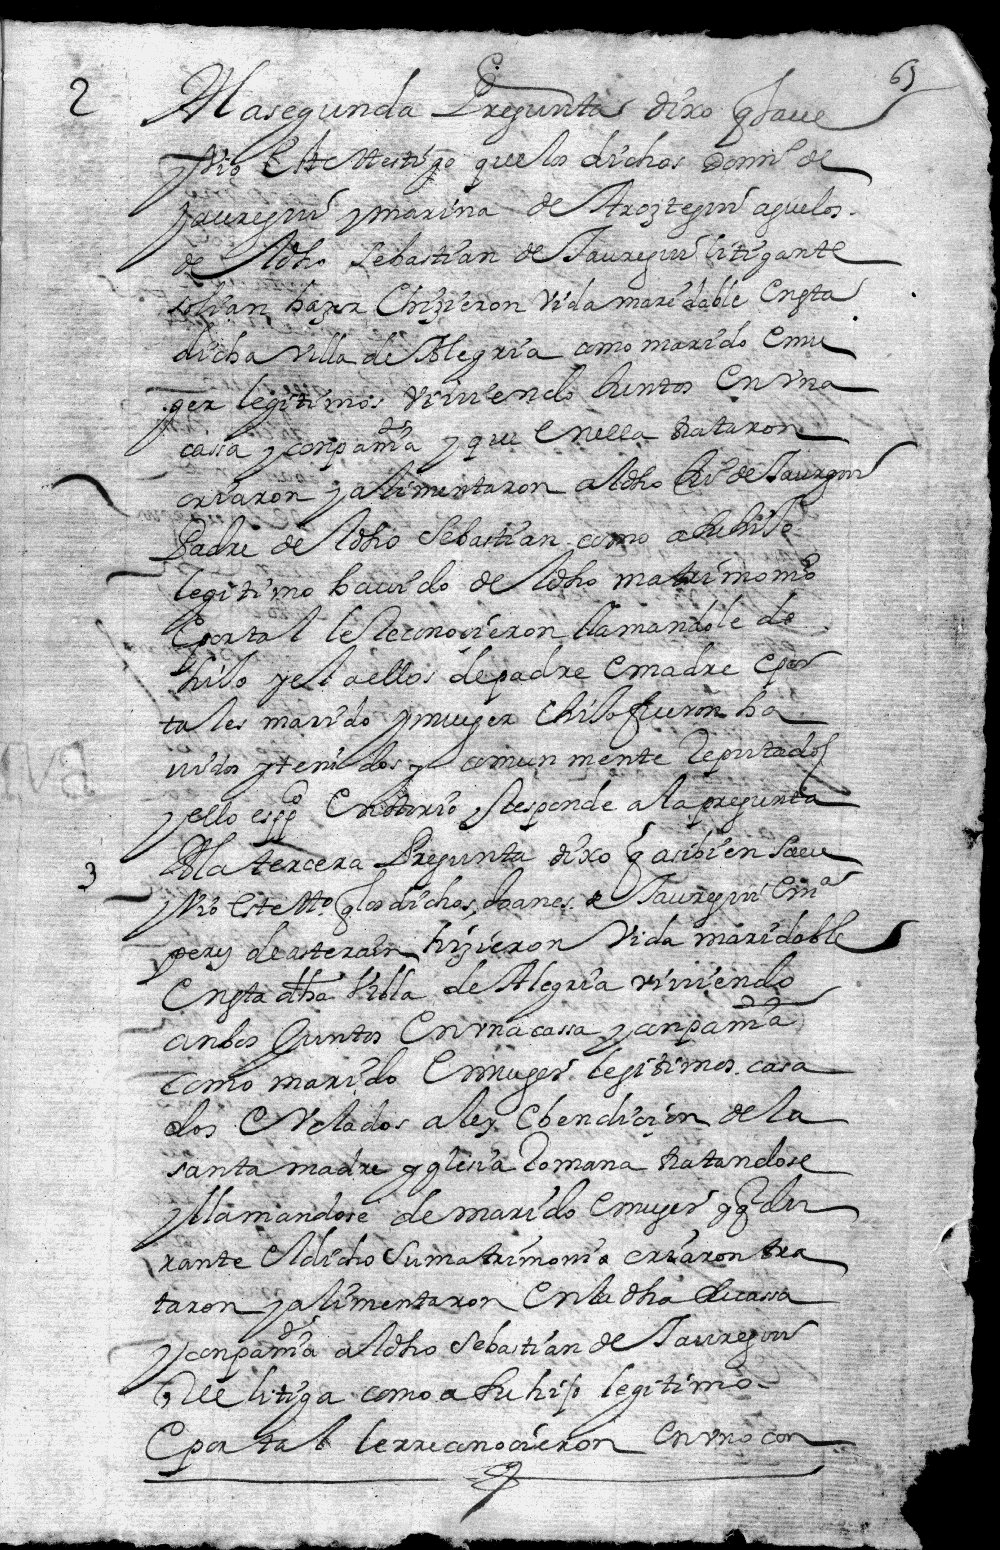 65
2 Ala segunda Pregunta dixo q saue
y vio este testigo que los dichos Domi.º de
Jauregui y marina de Aroztegui aguelos
de el dho Sebastian de Jauregui litigante
solian hazer E hizieron vida maridable En esta
dicha Villa de Alegria como marido E mu
ger legitimos viuiendo Juntos En vna
cassa y conpañia y que En ella trataron
criaron y alimentaron al dho de Jauregui
Padre de el dho Sebastian como a su hijo
legitimo hauido de el dho matrimonio
E por tal le Reconocieron llamandole de
hijo y el a ellos de padre E madre E por
tales marido y muger E hijo fueron ha
uidos y tenidos y comun mente Reputados
y ello es pp.co E notorio y Responde a la pregunta
3 A la tercera Pregunta dixo q asibien saue
y vio este tt.º q los dichos Joanes de Jauregui E m.ª
perez de asterain hizieron Vida maridable
En esta dha Villa de Alegria viviendo
anbos Juntos En vna cassa y conpañia
como marido E muger legitimos casa
dos E Velados a ley E bendicion de la
santa madre yglesia Romana tratandose
y llamandose de marido E muger y q du
rante el dicho su matrimonio criaron tra
taron y alimentaron En la dha su cassa
y conpañia al dho Sebastian de Jauregui
Que litiga como a su hijo legitimo
E por tal le rreconocieron En vno con